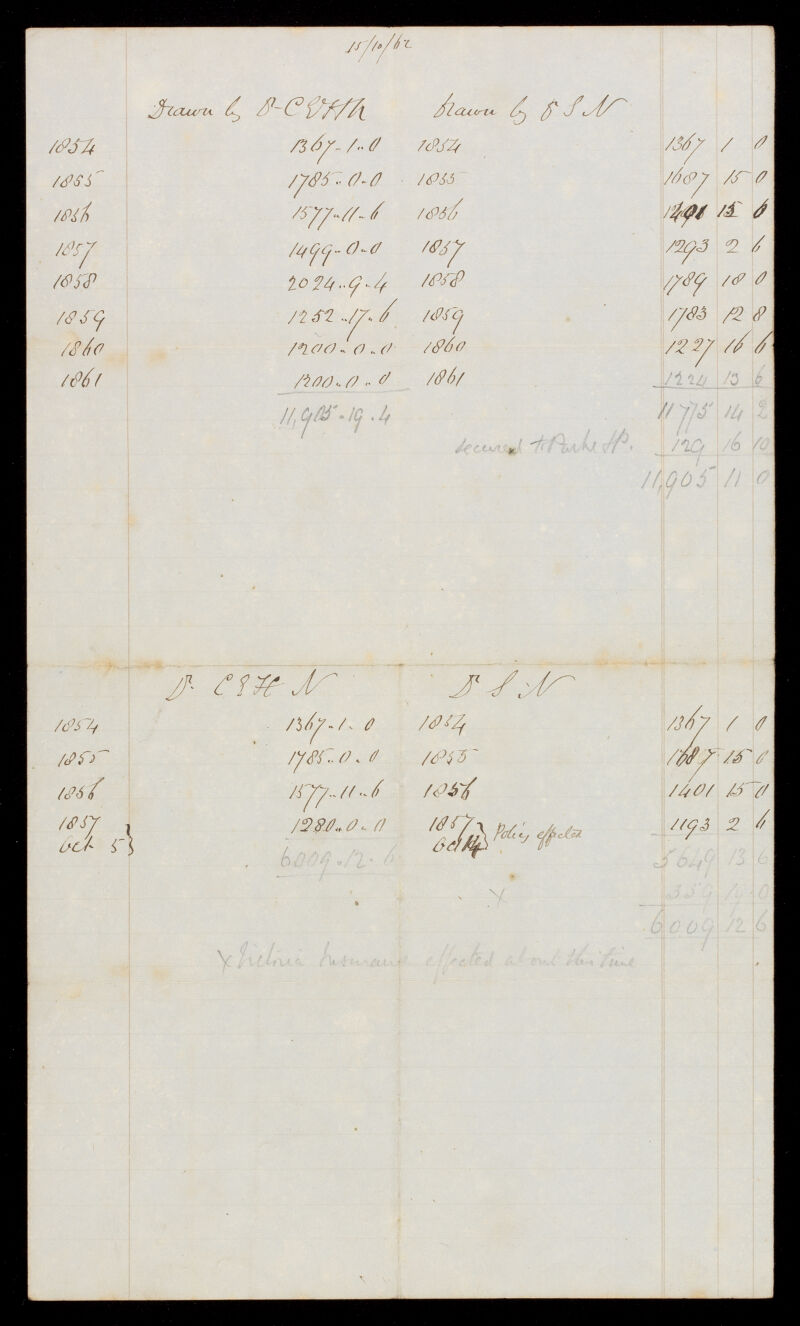 15/10/62
Drawn by Dr C E H N Drawn by Dr S N
1854 1367-1-0 1854 1367 1 0
1855 1785..0-0 1855 1687 15 0
1856 1577-11-6 1856 1401 15 0
1857 1499-0-0 1857 1293 2 6
1858 2024..9-4 1858 1789 18 0
1859 1252-17-6 1859 1783 12 8
1860 1200-0-0 1860 1227 16 6
1861 1200-0-0 1861 1224 13 6
11,905-19-4 11775 14 2
secured 129 16 10
11,905 11 0
Dr C E H N Dr S N
1854 1367-1-0 1854 1367 1 0
1855 1785..0-0 1855 1687 15 0
1856 1577-11-6 1856 1401 15 0
1857 1280-0-0 1857 Policy effected 1193 2 6
Oct 5 Oct 14
6009-12-6 5649 13 6
x 359 19 0
6009 12 6
x Victoria Insurance effected about this time